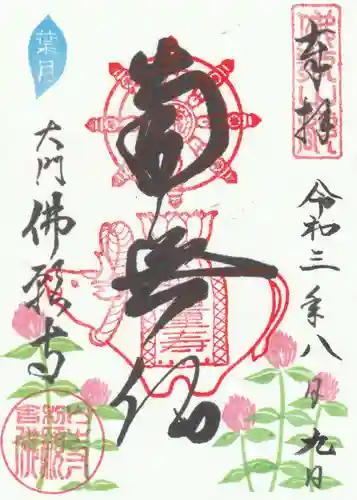 奉拝
令和三年八月九日
南無僧
葉月
大門
佛願寺